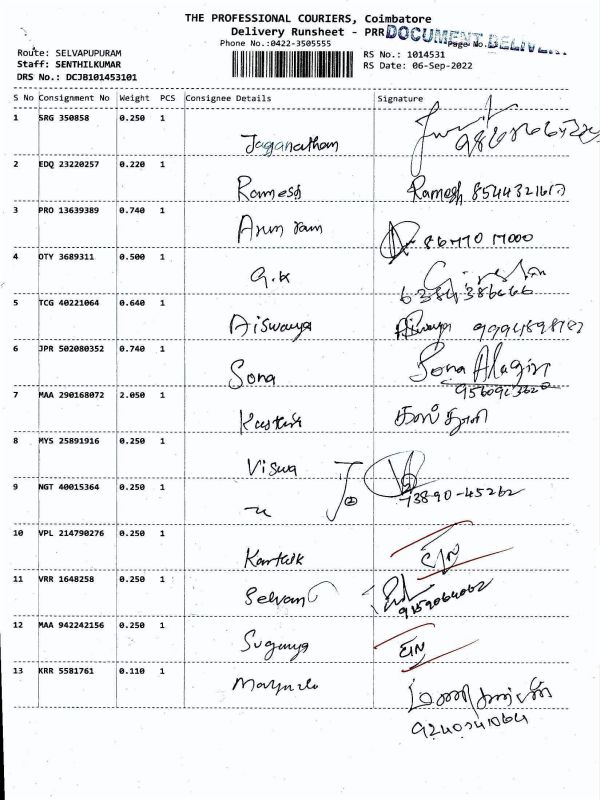 THE PROFESSIONAL COURIERS, Coimbatore
Delivery Runsheet - PRR
DOCUMENT DELIVERY
Phone No.:0422-3505555
Page No.
Route: SELVAPUPURAM
RS No.: 1014531
Staff: SENTHILKUMAR
RS Date: 06-Sep-2022
DRS No.: DCJB101453101
S No Consignment No Weight PCS Consignee Details Signature
1 SRG 350858 0.250 1 Jaganatham
2 EDQ 23220257 0.220 1 Ramesh Ramesh 8544321617
3 PRO 13639389 0.740 1 Arun ram 86770 17000
4 OTY 3689311 0.500 1 G.K
6384386666
5 TCG 40221064 0.640 1 Aiswarya Aiswarya
6 JPR 502080352 0.740 1 Sona Sona Alagiri
7 MAA 290168072 2.050 1
8 MYS 25891916 0.250 1 Viswa
9 NGT 40015364 0.250 1 73890-45262
10 VPL 214790276 0.250 1 Karthik
11 VRR 1648258 0.250 1 Selvam
9159064062
12 MAA 942242156 0.250 1 Suganya
13 KRR 5581761 0.110 1